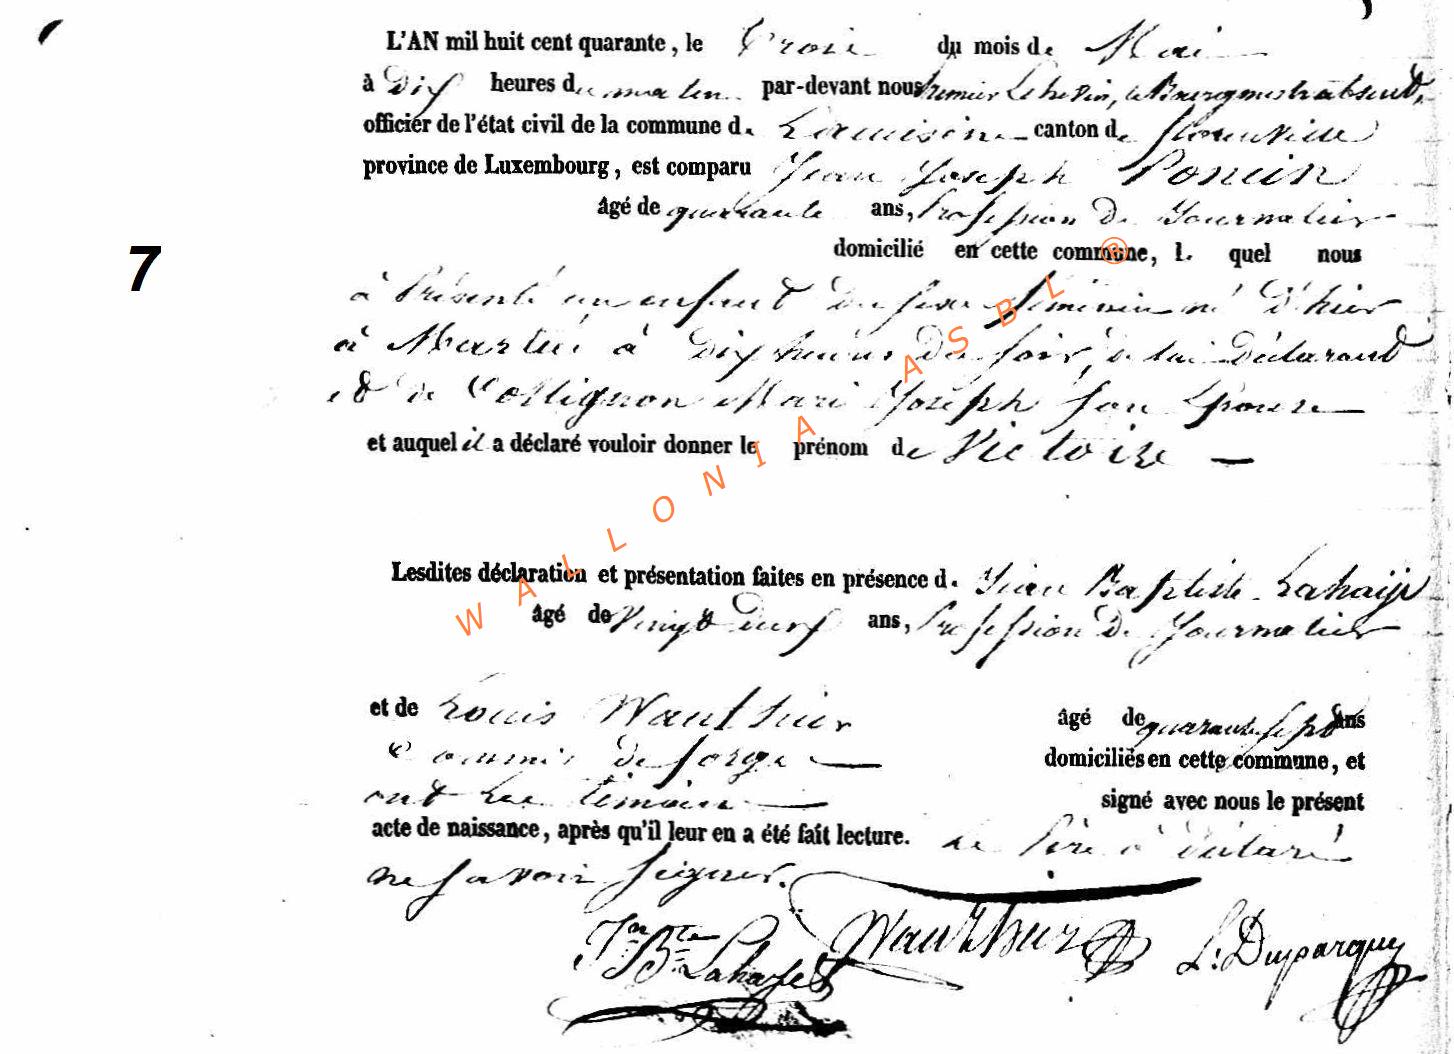 L'AN mil huit cent quarante, le Trois du mois de Mai
à Dix heures du matin par-devant nous Premier Echevin, le Bourgmestre absent,
officier de l'état civil de la commune de canton de florenville
province de Luxembourg, est comparu Jean Joseph Poncin
âgé de quarante ans, Profession de Journalier
domicilié en cette commune, l. quel nous
7
à Présenté un enfant du sexe féminin né d'hier
à Martué à Dix heures du soir, de lui Déclarant
et de Collignon Mari Joseph son Epouse
et auquel il a déclaré vouloir donner le prénom de Victoire
Lesdites déclaration et présentation faites en présence d. Jean Baptiste Lahaije
âgé de Vingt ans, Profession De Journalier
et de Louis Wauthier âgé de quarante sept ans
Commis de forge domiciliés en cette commune, et
ont Les témoins signé avec nous le présent
acte de naissance, après qu'il leur en a été fait lecture. Le Père à déclaré
ne savoir signer.
Jn Bte Lahaye Wauthier L: Duparquy
WALLONIA ASBL ®